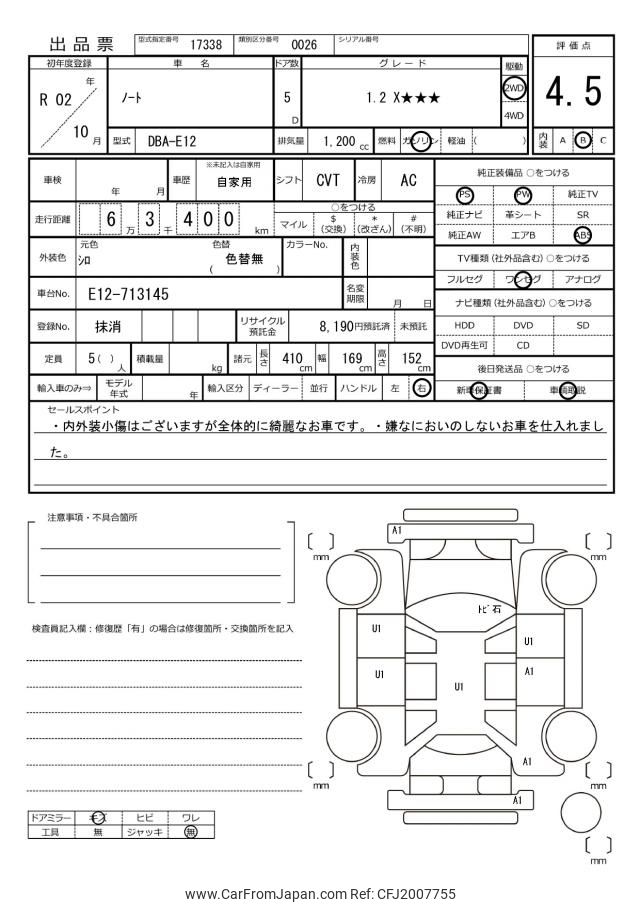 出品票 型式指定番号 17338 類別区分番号 0026 シリアル番号
初年度登録 車名 ドア数 グレード 駆動 評価点
R 02 年 10 月 ノート 5 D 1.2 X★★★ 2WD 4WD 4.5
型式 DBA-E12 排気量 1,200 cc 燃料 ガソリン 軽油 ( ) 内装 A B C
車検 年 月 車歴 ※未記入は自家用 自家用 シフト CVT 冷房 AC
走行距離 6 万 3 千 4 0 0 km ○をつける マイル $ (交換) * (改ざん) # (不明)
外装色 元色 シロ 色替 ( 色替無 ) カラーNo. 内装色
車台No. E12-713145 名変期限 月 日
登録No. 抹消 リサイクル預託金 8,190円預託済 未預託
定員 5( ) 人 積載量 kg 諸元 長さ 410 cm 幅 169 cm 高さ 152 cm
輸入車のみ⇒ モデル年式 年 輸入区分 ディーラー 並行 ハンドル 左 右
純正装備品 ○をつける
PS PW 純正TV
純正ナビ 革シート SR
純正AW エアB ABS
TV種類 (社外品含む) ○をつける
フルセグ ワンセグ アナログ
ナビ種類 (社外品含む) ○をつける
HDD DVD SD
DVD再生可 CD
後日発送品 ○をつける
新車保証書 車輌取説
セールスポイント
・内外装小傷はございますが全体的に綺麗なお車です。・嫌なにおいのしないお車を仕入れまし
た。
注意事項・不具合箇所
検査員記入欄：修復歴「有」の場合は修復箇所・交換箇所を記入
ドアミラー キズ ヒビ ワレ
工具 無 ジャッキ 無
A1
mm
mm
トビ石
U1
U1
U1
A1
U1
A1
mm
mm
A1
mm
www.CarFromJapan.com Ref: CFJ2007755